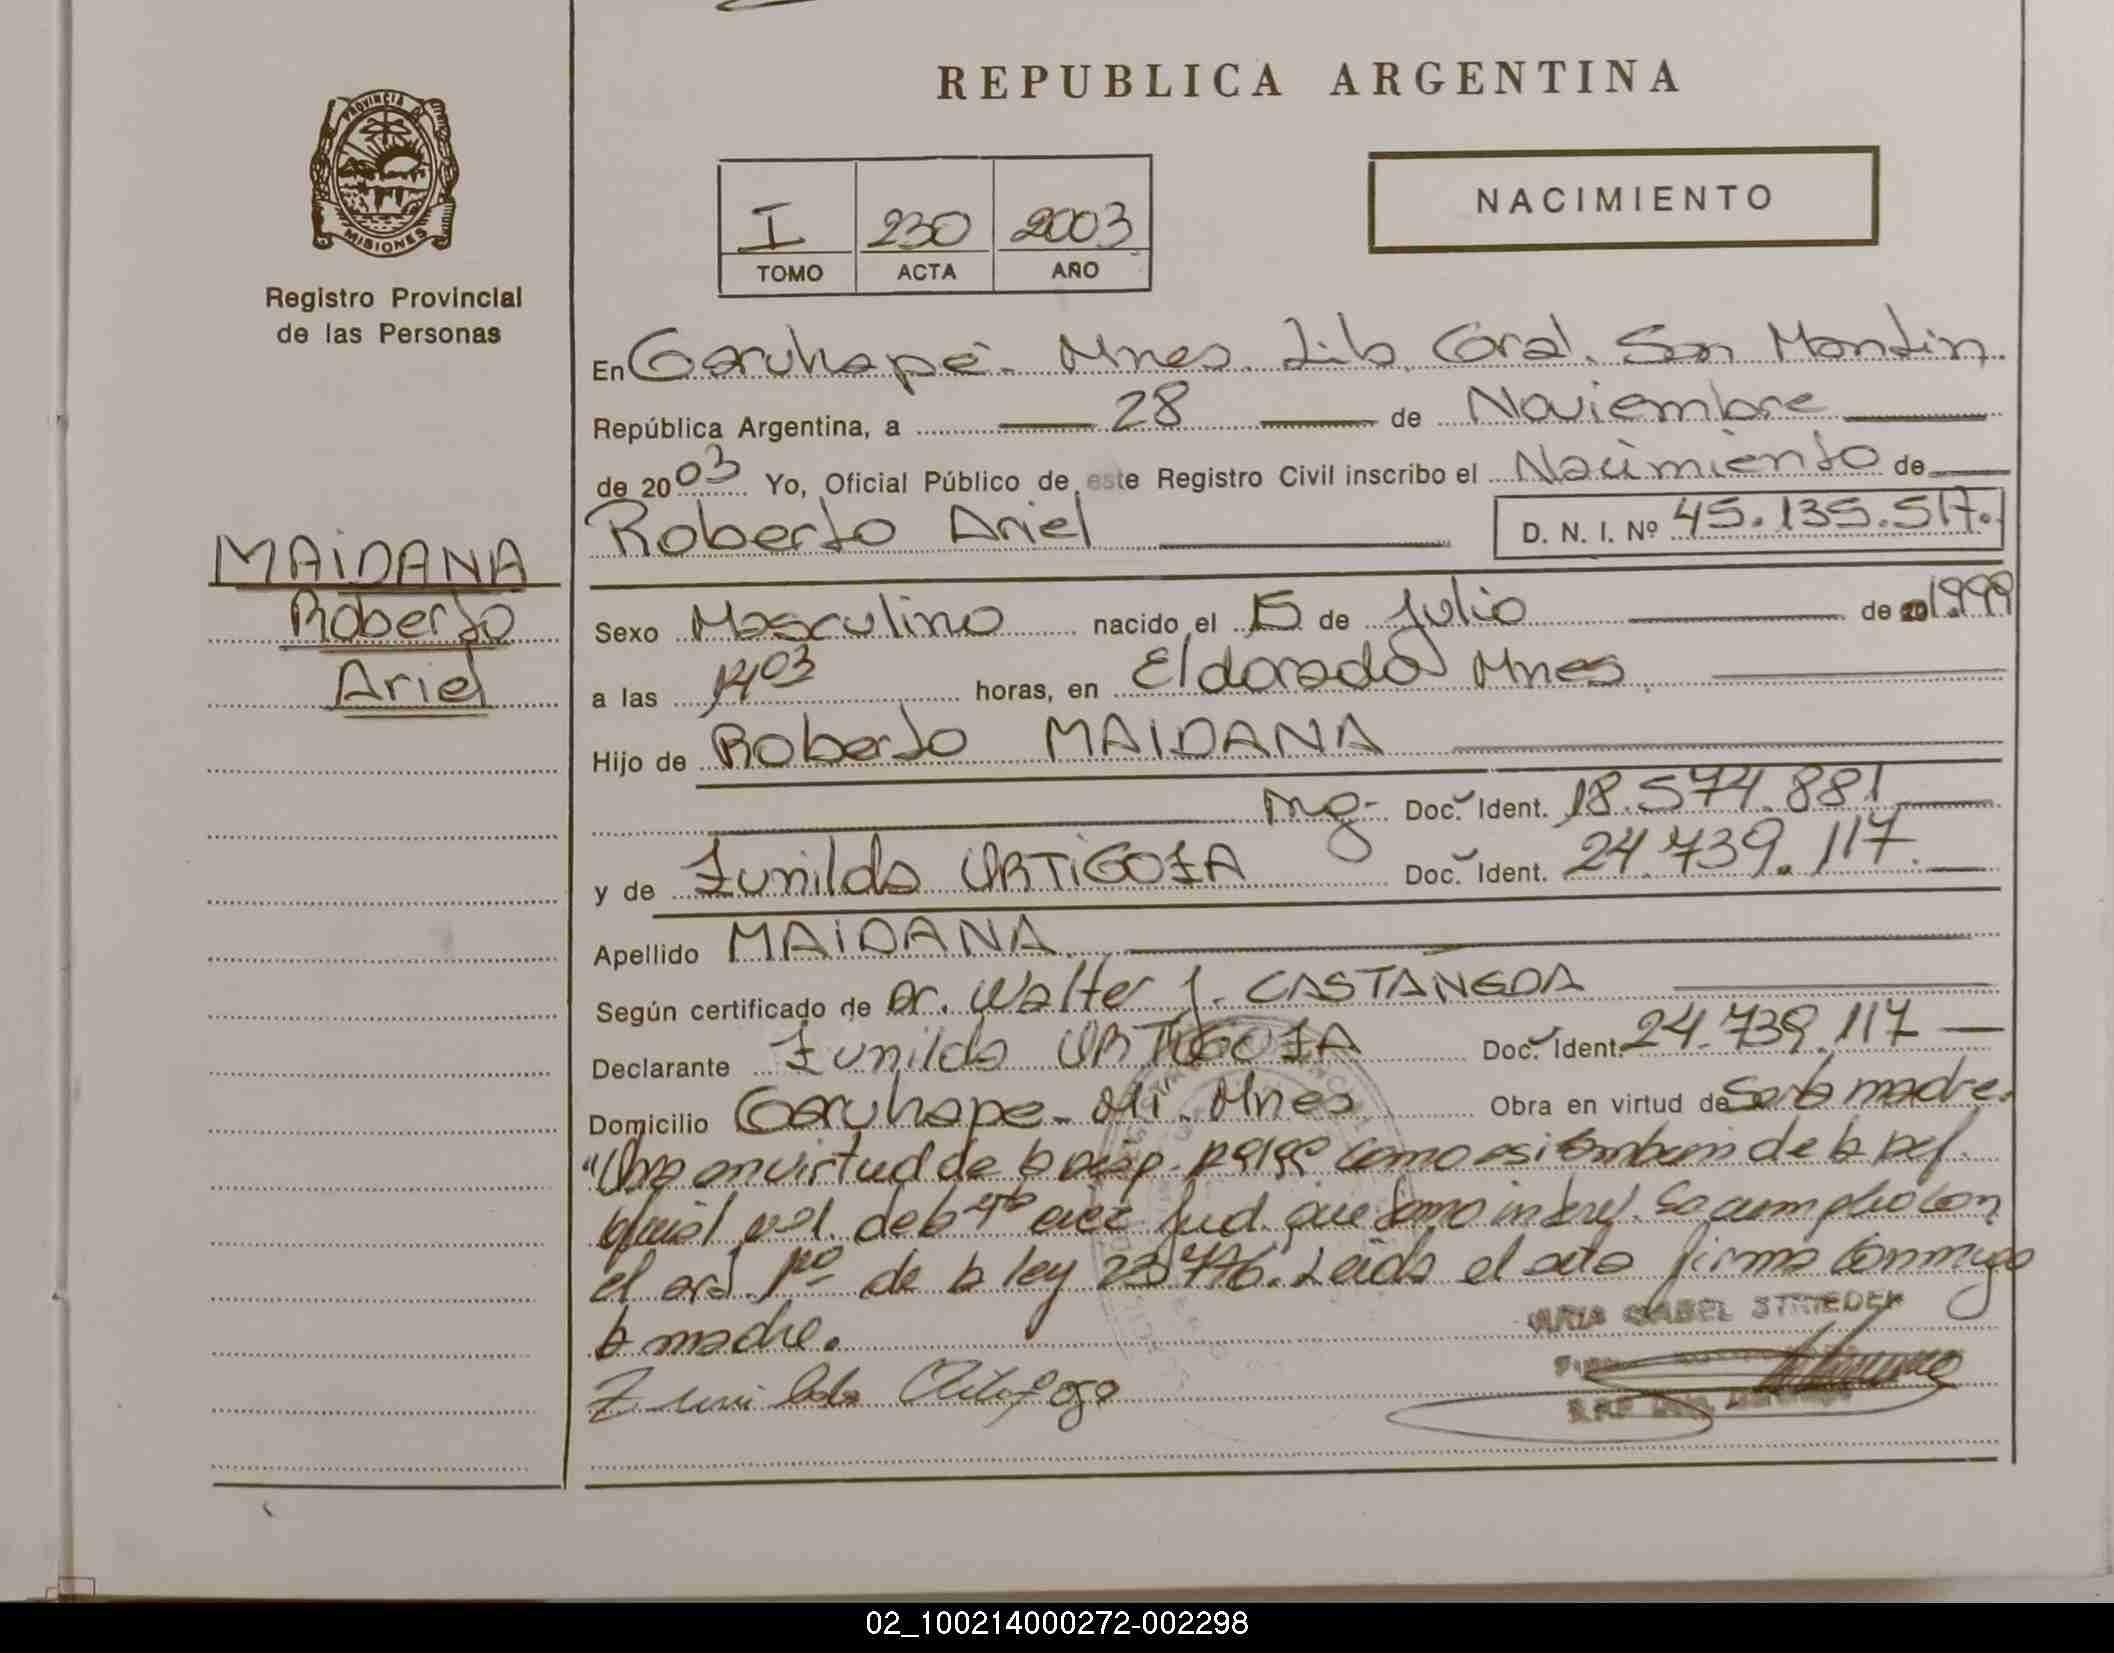 REPUBLICA ARGENTINA
PROVINCIA DE
MISIONES
Registro Provincial
de las Personas
I 230 2003
TOMO ACTA AÑO
NACIMIENTO
En Garuhapé - Mnes. Lib. Gral. San Martin.
República Argentina, a 28 de Noviembre
de 2003 Yo, Oficial Público de este Registro Civil inscribo el Nacimiento de
Roberto Ariel D. N. I. Nº 45.135.517.
MAIDANA
Roberto
Ariel
Sexo Masculino nacido el 15 de Julio de 1999
a las 1403 horas, en Eldorado Mnes.
Hijo de Roberto MAIDANA
Doc. Ident. 18.574.881
y de Zunilda URTIGOZA Doc. Ident. 24.739.117.
Apellido MAIDANA
Según certificado de Dr. Walter J. CASTAÑEDA
Declarante Zunilda URTIGOZA Doc. Ident. 24.739.117
Domicilio Garuhape - Mi - Mnes Obra en virtud de Ser la madre.
"Obra en virtud de la disp. como asi tambien de la
de la Jud. que tomo Se cumplio con
el art. 1ro de la ley 23.776. Leida el acta firma conmigo
la madre.
Zunilda Urtigoza
02_100214000272-002298